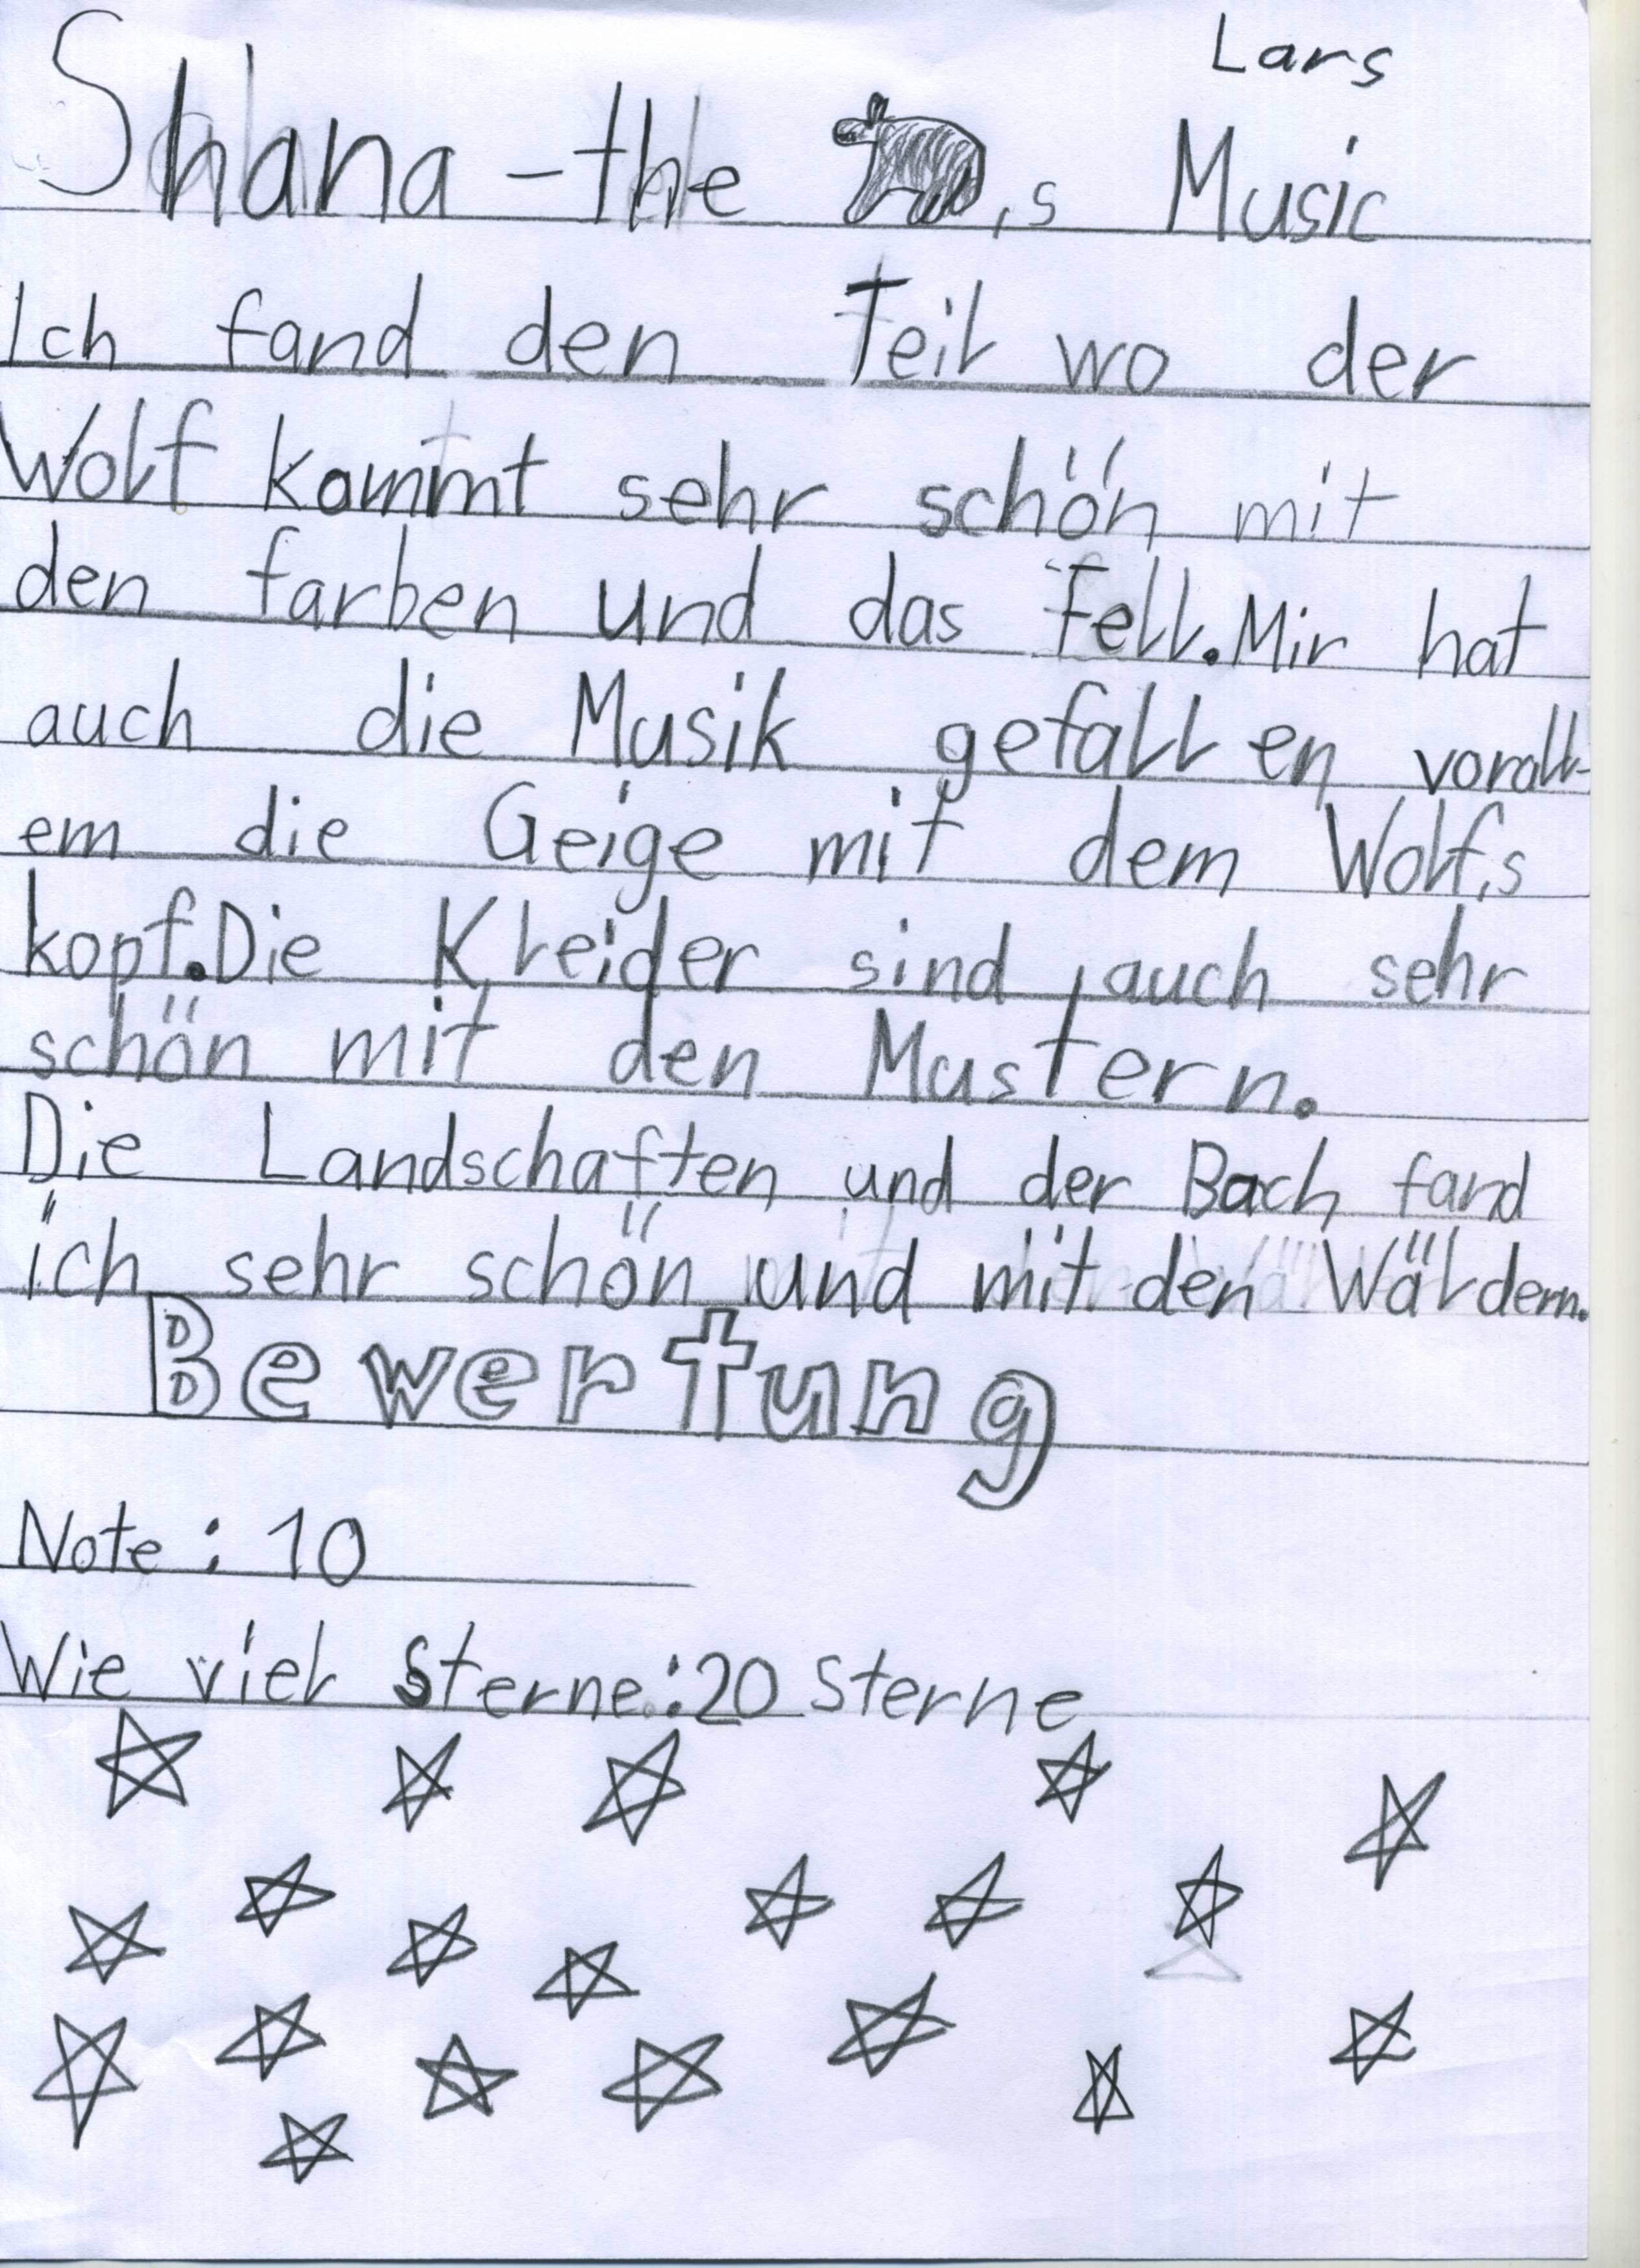 Lars
Shana - the ,s Music
Ich fand den Teil wo der
Wolf kommt sehr schön mit
den farben und das Fell. Mir hat
auch die Musik gefallen vorall-
em die Geige mit dem Wolf,s
kopf. Die Kleider sind auch sehr
schön mit den Mustern.
Die Landschaften und der Bach fand
ich sehr schön und mit den Wäldern.
Bewertung
Note: 10
Wie viel Sterne: 20 Sterne